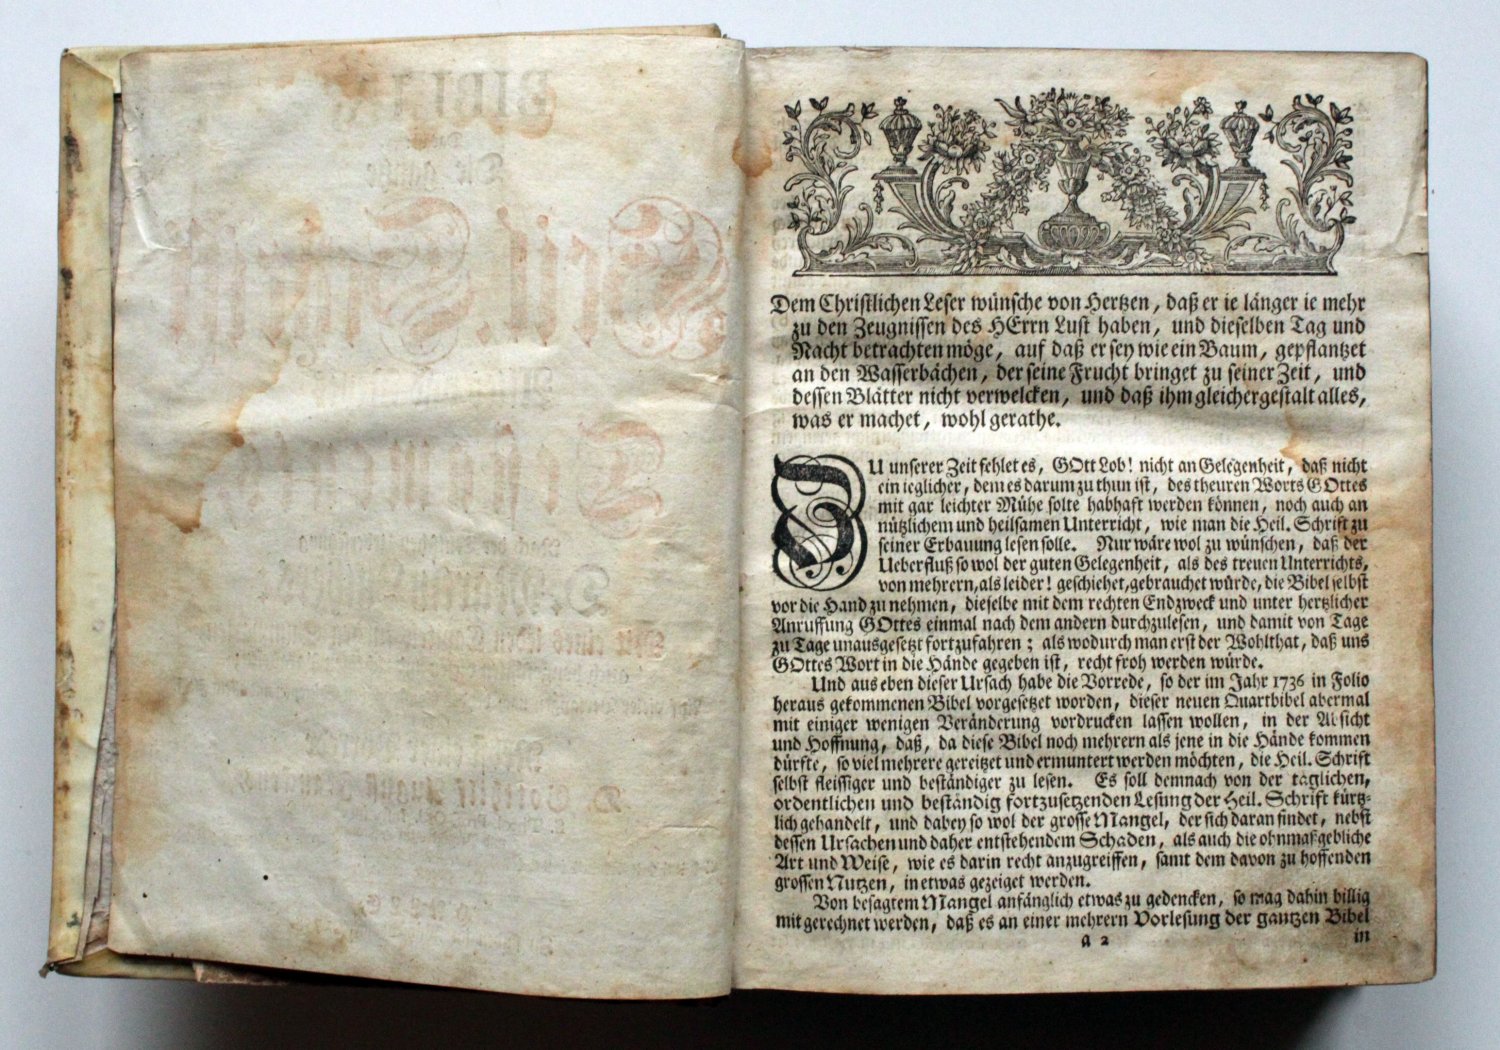 Dem Christlichen Leser wünsche von Hertzen, daß er ie länger ie mehr
zu den Zeugnissen des HErrn Lust haben, und dieselben Tag und
Nacht betrachten möge, auf daß er sey wie ein Baum, gepflantzet
an den Wasserbächen, der seine Frucht bringet zu seiner Zeit, und
dessen Blätter nicht verwelcken, und daß ihm gleichergestalt alles,
was er machet, wohl gerathe.
ZU unserer Zeit fehlet es, GOtt Lob! nicht an Gelegenheit, daß nicht
ein ieglicher, dem es darum zu thun ist, des theuren Worts GOttes
mit gar leichter Mühe solte habhaft werden können, noch auch an
nützlichem und heilsamen Unterricht, wie man die Heil. Schrift zu
seiner Erbauung lesen solle. Nur wäre wol zu wünschen, daß der
Ueberfluß so wol der guten Gelegenheit, als des treuen Unterrichts,
von mehrern, als leider! geschiehet, gebrauchet würde, die Bibel selbst
vor die Hand zu nehmen, dieselbe mit dem rechten Endzweck und unter hertzlicher
Anruffung GOttes einmal nach dem andern durchzulesen, und damit von Tage
zu Tage unausgesetzt fortzufahren; als wodurch man erst der Wohlthat, daß uns
GOttes Wort in die Hände gegeben ist, recht froh werden würde.
Und aus eben dieser Ursach habe die Vorrede, so der im Jahr 1736 in Folio
heraus gekommenen Bibel vorgesetzet worden, dieser neuen Quartbibel abermal
mit einiger wenigen Veränderung vordrucken lassen wollen, in der Absicht
und Hoffnung, daß, da diese Bibel noch mehrern als jene in die Hände kommen
dürfte, so viel mehrere gereitzet und ermuntert werden möchten, die Heil. Schrift
selbst fleissiger und beständiger zu lesen. Es soll demnach von der täglichen,
ordentlichen und beständig fortzusetzenden Lesung der Heil. Schrift kürtz-
lich gehandelt, und dabey so wol der grosse Mangel, der sich daran findet, nebst
dessen Ursachen und daher entstehendem Schaden, als auch die ohnmaßgebliche
Art und Weise, wie es darin recht anzugreiffen, samt dem davon zu hoffenden
grossen Nutzen, in etwas gezeiget werden.
Von besagtem Mangel anfänglich etwas zu gedencken, so mag dahin billig
mit gerechnet werden, daß es an einer mehrern Vorlesung der gantzen Bibel
a 2
in